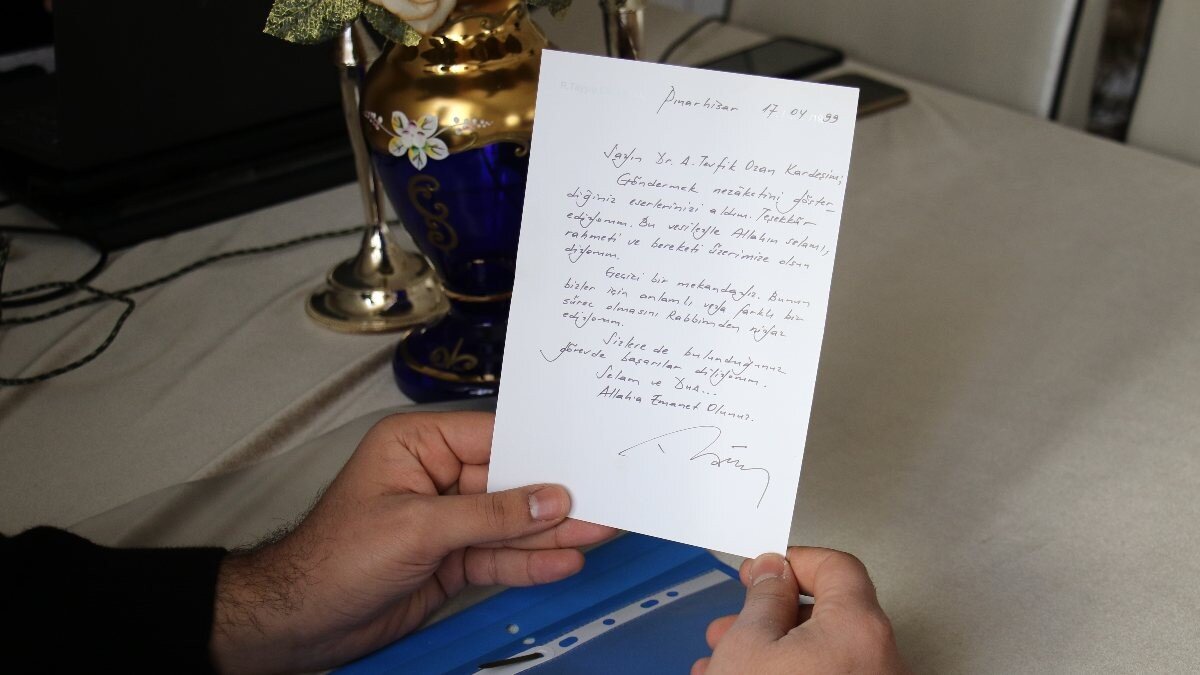 R.Tayyip
Pınarhisar 17 04 99
Sayın Dr. A. Tevfik Ozan Kardeşim;
Göndermek nezâketini göster-
diğiniz eserlerinizi aldım. Teşekkür
ediyorum. Bu vesileyle Allahın selamı,
rahmeti ve bereketi üzerimize olsun
diyorum.
Geçici bir mekandayız. Bunun
bizler için anlamlı veya farklı bir
süreç olmasını Rabbimden niyaz
ediyorum.
Sizlere de bulunduğunuz
görevde başarılar diliyorum.
Selam ve Dua...
Allaha Emanet Olunuz.